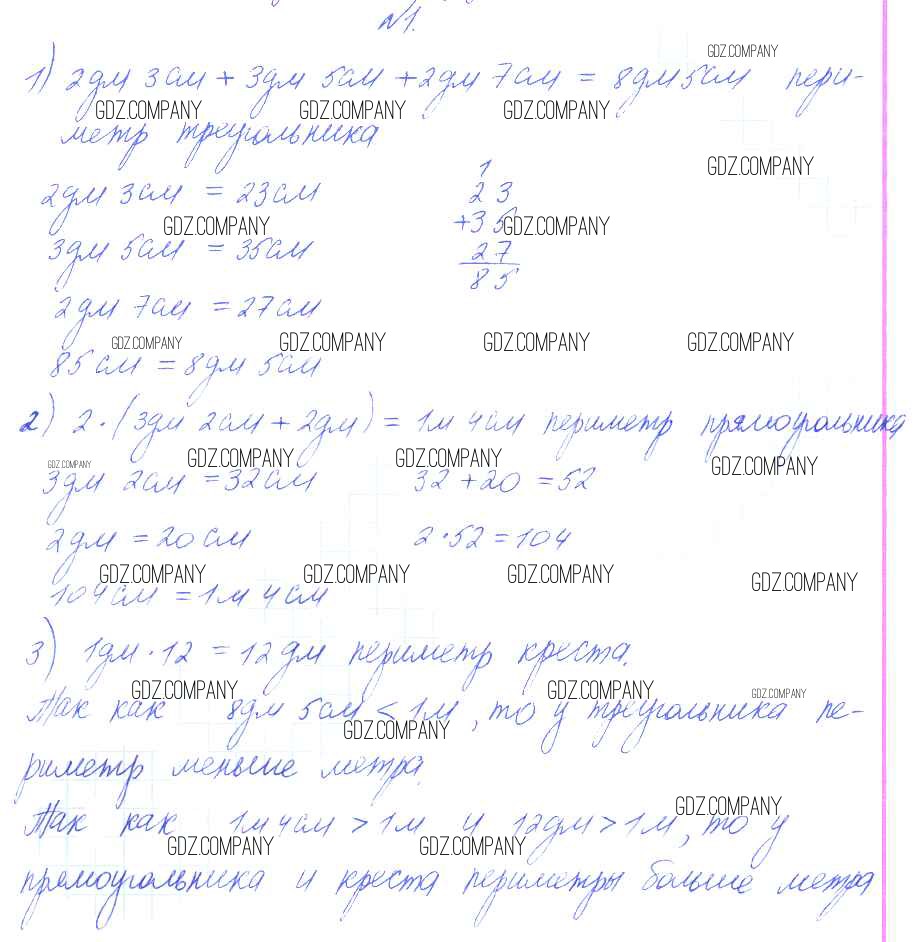 №1.
GDZ.COMPANY
1) 2дм 3см + 3дм 5см + 2дм 7см = 8дм 5см пери-
GDZ.COMPANY GDZ.COMPANY GDZ.COMPANY
метр треугольника
GDZ.COMPANY
1
2дм 3см = 23см 23
GDZ.COMPANY +35 GDZ.COMPANY
3дм 5см = 35см 27
85
2дм 7см = 27см
GDZ.COMPANY GDZ.COMPANY GDZ.COMPANY GDZ.COMPANY
85см = 8дм 5см
2) 2·(3дм 2см + 2дм) = 1м 4см периметр прямоугольника
GDZ.COMPANY GDZ.COMPANY GDZ.COMPANY GDZ.COMPANY
3дм 2см = 32см 32 + 20 = 52
2дм = 20см 2·52 = 104
GDZ.COMPANY GDZ.COMPANY GDZ.COMPANY GDZ.COMPANY
104см = 1м 4см
3) 1дм·12 = 12дм периметр креста.
GDZ.COMPANY GDZ.COMPANY GDZ.COMPANY
Так как 8дм 5см < 1м, то у треугольника пе-
GDZ.COMPANY
риметр меньше метра.
GDZ.COMPANY
Так как 1м 4см > 1м и 12дм > 1м, то у
GDZ.COMPANY GDZ.COMPANY
прямоугольника и креста периметры больше метра